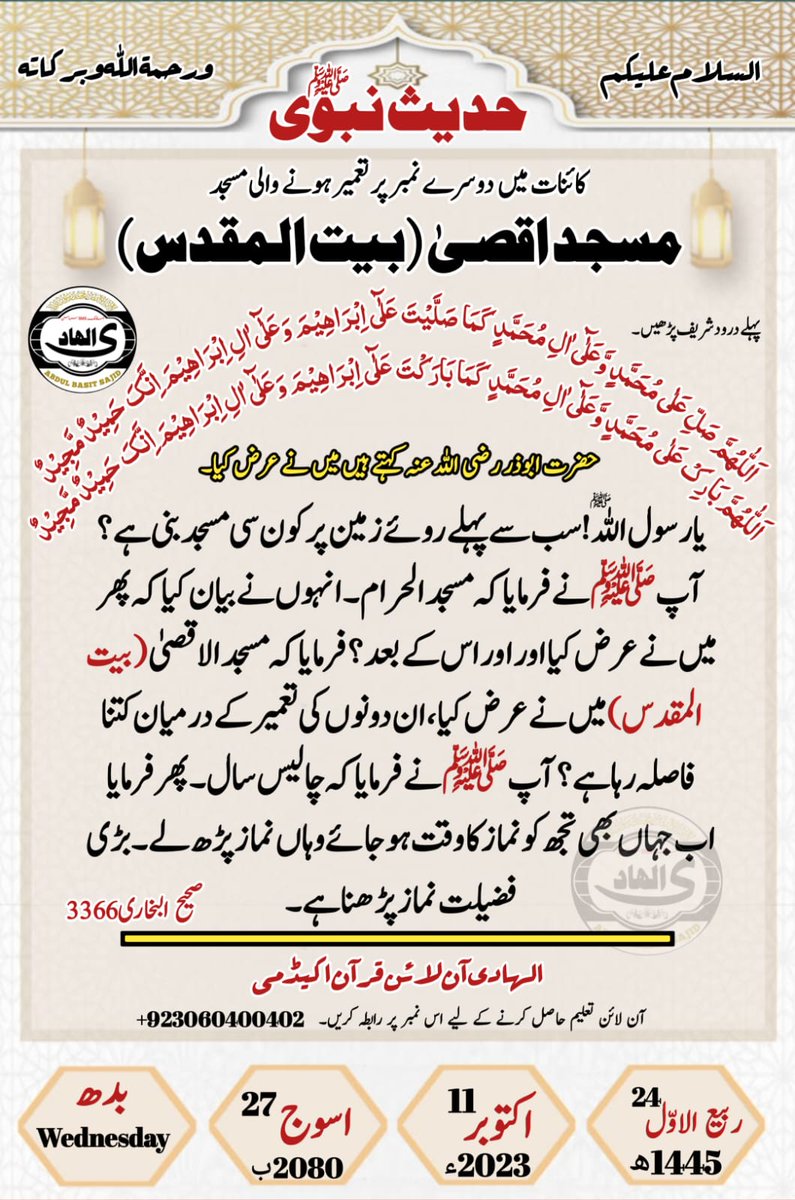 السلام علیکم
ورحمۃ اللہ وبرکاتہ
حدیث نبوی ﷺ
کائنات میں دوسرے نمبر پر تعمیر ہونے والی مسجد
مسجد اقصیٰ (بیت المقدس)
پہلے درود شریف پڑھیں۔
اَللّٰهُمَّ صَلِّ عَلٰی مُحَمَّدٍ وَّعَلٰٓی اٰلِ مُحَمَّدٍ کَمَا صَلَّیْتَ عَلٰٓی اِبْرَاهِیْمَ وَعَلٰٓی اٰلِ اِبْرَاهِیْمَ اِنَّکَ حَمِیْدٌ مَّجِیْدٌ
اَللّٰهُمَّ بَارِکْ عَلٰی مُحَمَّدٍ وَّعَلٰٓی اٰلِ مُحَمَّدٍ کَمَا بَارَکْتَ عَلٰٓی اِبْرَاهِیْمَ وَعَلٰٓی اٰلِ اِبْرَاهِیْمَ اِنَّکَ حَمِیْدٌ مَّجِیْدٌ
الهادی
ABDUL BASIT SAJID
حضرت ابوذر رضی اللہ عنہ کہتے ہیں میں نے عرض کیا۔
یارسول اللہ ﷺ! سب سے پہلے روئے زمین پر کون سی مسجد بنی ہے؟
آپ ﷺ نے فرمایا کہ مسجد الحرام۔ انہوں نے بیان کیا کہ پھر
میں نے عرض کیا اور اور اس کے بعد؟ فرمایا کہ مسجد الاقصیٰ (بیت
المقدس) میں نے عرض کیا، ان دونوں کی تعمیر کے درمیان کتنا
فاصلہ رہا ہے؟ آپ ﷺ نے فرمایا کہ چالیس سال۔ پھر فرمایا
اب جہاں بھی تجھ کو نماز کا وقت ہو جائے وہاں نماز پڑھ لے۔ بڑی
فضیلت نماز پڑھنا ہے۔
صحیح البخاری 3366
الہادی آن لائن قرآن اکیڈمی
آن لائن تعلیم حاصل کرنے کے لیے اس نمبر پر رابطہ کریں۔ +923060400402
24 ربیع الاوّل
1445ھ
11 اکتوبر
2023ء
27 اسوج
2080ب
بدھ
Wednesday